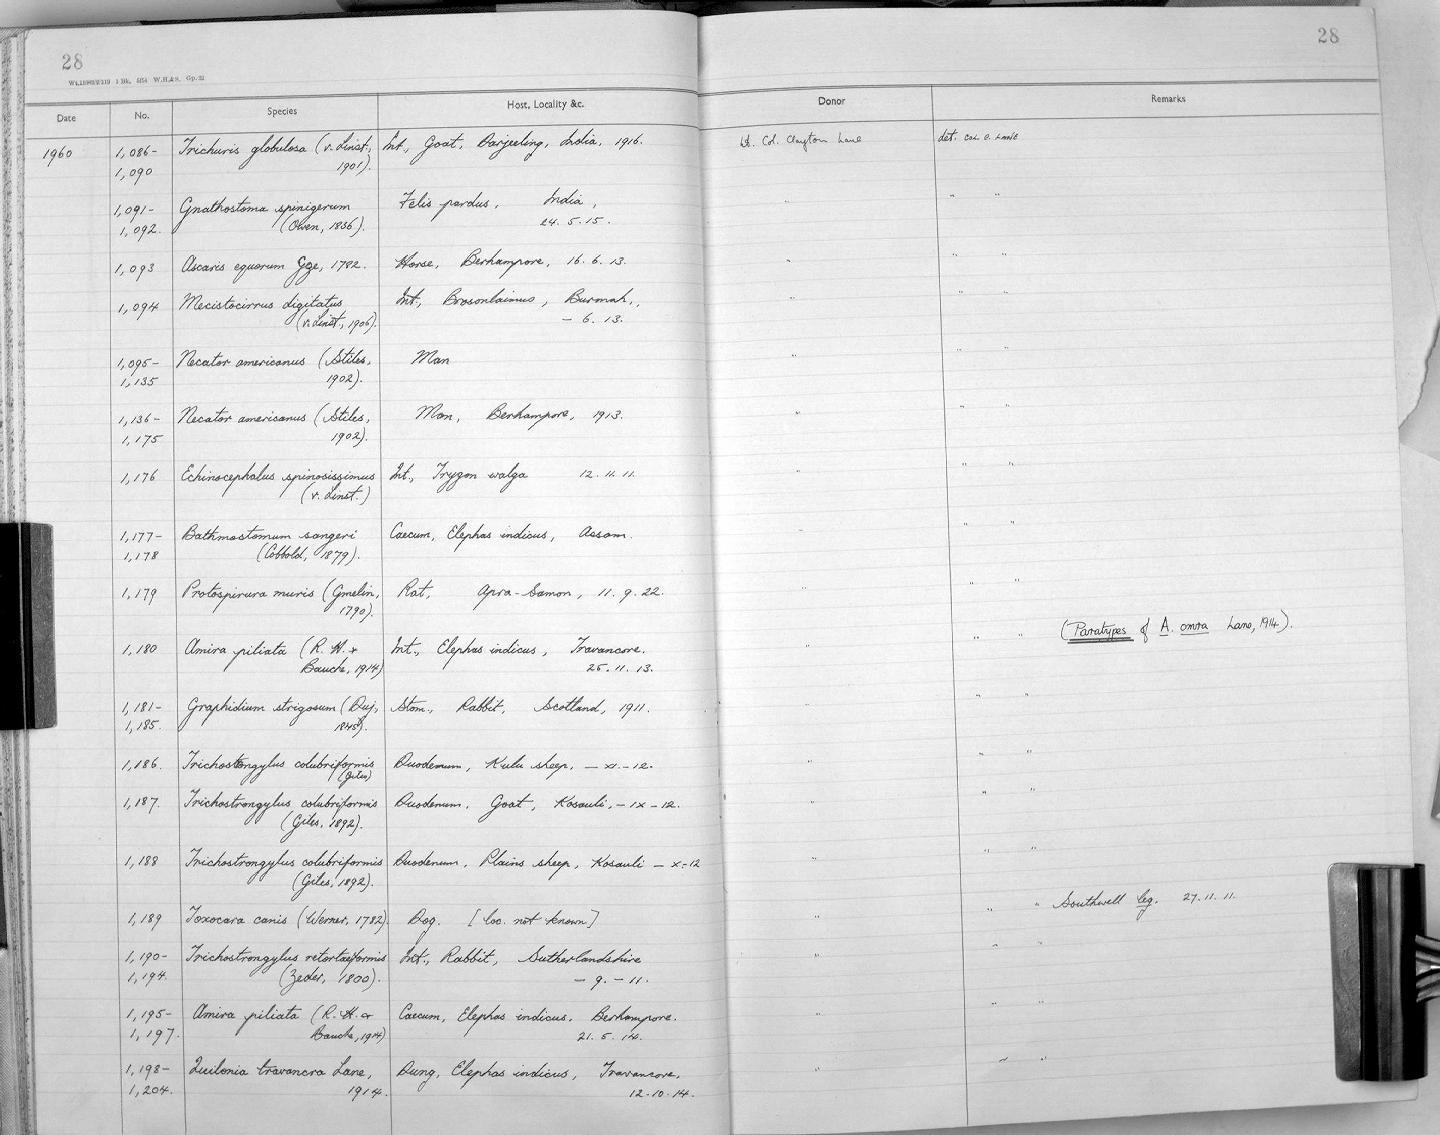 28
28
Date No. Species Host, Locality &c. Donor Remarks
1960 1,086- Trichuris globulosa (v. Linst., Int., Goat, Darjeeling, India, 1916. Lt. Col. Clayton Lane det. Col. C. Lane
1,090 1901).
1,091- Gnathostoma spinigerum Felis pardus, India, " " "
1,092. (Owen, 1836) 24. 5. 15.
1,093 Ascaris equorum Gze, 1782. Horse, Berhampore, 16. 6. 13. " " "
1,094 Mecistocirrus digitatus Int., Bosonlaimus, Burmah, " " "
(v. Linst., 1906). - 6. 13.
1,095- Necator americanus (Stiles, Man " " "
1,135 1902).
1,136- Necator americanus (Stiles, Man, Berhampore, 1913. " " "
1,175 1902).
1,176 Echinocephalus spinosissimus Int., Trygon walga 12. 11. 11. " " "
(v. Linst.)
1,177- Bathmostomum sangeri Caecum, Elephas indicus, Assam. " " "
1,178 (Cobbold, 1879).
1,179 Protospirura muris (Gmelin, Rat, Apra-Samon, 11. 9. 22. " " "
1790).
1,180 Amira piliata (R. H. + Int., Elephas indicus, Travancore. " " " (Paratypes of A. omra Lane, 1914).
Bauche, 1914) 25. 11. 13.
1,181- Graphidium strigosum (Duj., Stom., Rabbit, Scotland, 1911. " " "
1,185. 1845).
1,186. Trichostongylus colubriformis Duodenum, Kulu sheep, - XI - 12. " " "
(Giles)
1,187. Trichostrongylus colubriformis Duodenum, Goat, Kosauli, - IX - 12. " " "
(Giles, 1892).
1,188 Trichostrongylus colubriformis Duodenum, Plains sheep, Kosauli - X - 12 " " "
(Giles, 1892).
1,189 Toxocara canis (Werner, 1782). Dog. [loc. not known] " " " Southwell leg. 27. 11. 11.
1,190- Trichostrongylus retortaeformis Int., Rabbit, Sutherlandshire " " "
1,194. (Zeder, 1800). - 9. - 11.
1,195- Amira piliata (R. H. + Caecum, Elephas indicus, Berhampore. " " "
1,197. Bauche, 1914) 21. 5. 14.
1,198- Quilonia travancra Lane, Dung, Elephas indicus, Travancore, " " "
1,204. 1914. 12. 10. 14.